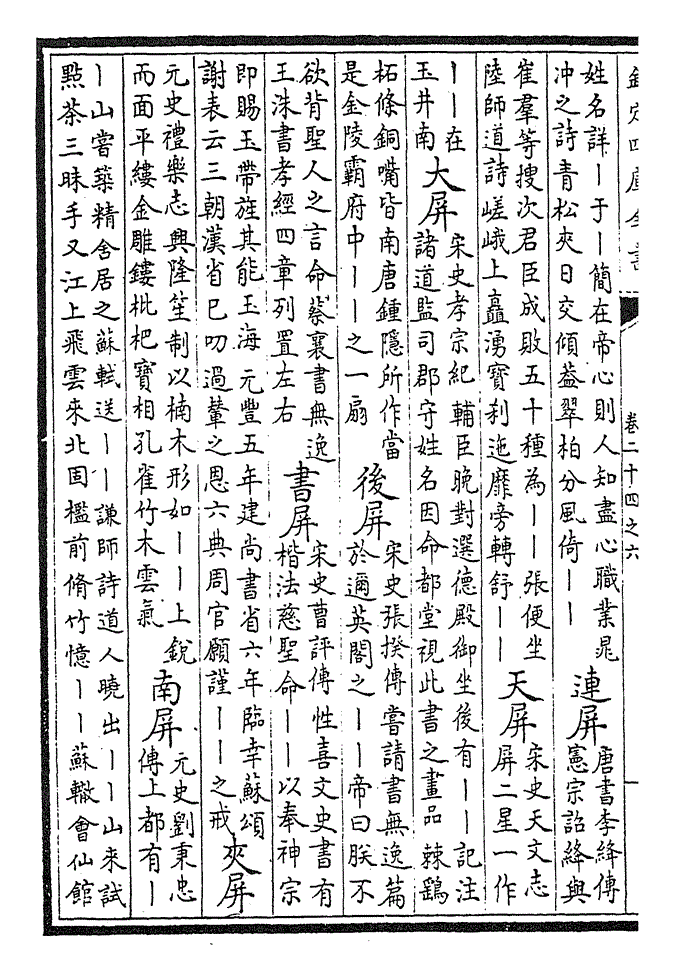 欽定四庫全書
卷二十四之六
姓名詳丨于丨簡在帝心則人知盡心職業晁
沖之詩青松夾日交傾葢翠柏分風倚丨丨
連屏
唐書李絳傳
憲宗詔絳與
崔羣等搜次君臣成敗五十種為丨丨張便坐
陸師道詩嵯峨上矗湧寶刹迤靡旁轉舒丨丨
天屏
宋史天文志
屏二星一作
丨丨在
玉井南
大屏
宋史孝宗紀輔臣晚對選德殿御坐後有丨丨記注
諸道監司郡守姓名因命都堂視此書之畫品棘鷂
柘條銅嘴皆南唐鍾隱所作當
是金陵霸府中丨丨之一扇
後屏
宋史張揆傳嘗請書無逸篇
於邇英閣之丨丨帝曰朕不
欲背聖人之言命蔡襄書無逸
王洙書孝經四章列置左右
書屏
宋史曹評傳性喜文史書有
楷法慈聖命丨丨以奉神宗
即賜玉帶旌其能玉海元豐五年建尚書省六年臨幸蘇頌
謝表云三朝漢省已叨過輦之恩六典周官願謹丨丨之戒
夾屏
元史禮樂志興隆笙制以楠木形如丨丨上銳
而面平縷金雕鏤枇杷寶相孔雀竹木雲氣
南屏
元史劉秉忠
傳上都有丨
丨山嘗築精舍居之蘇軾送丨丨謙師詩道人曉出丨丨山來試
點茶三昧手又江上飛雲來北固檻前脩竹憶丨丨蘇轍會仙館